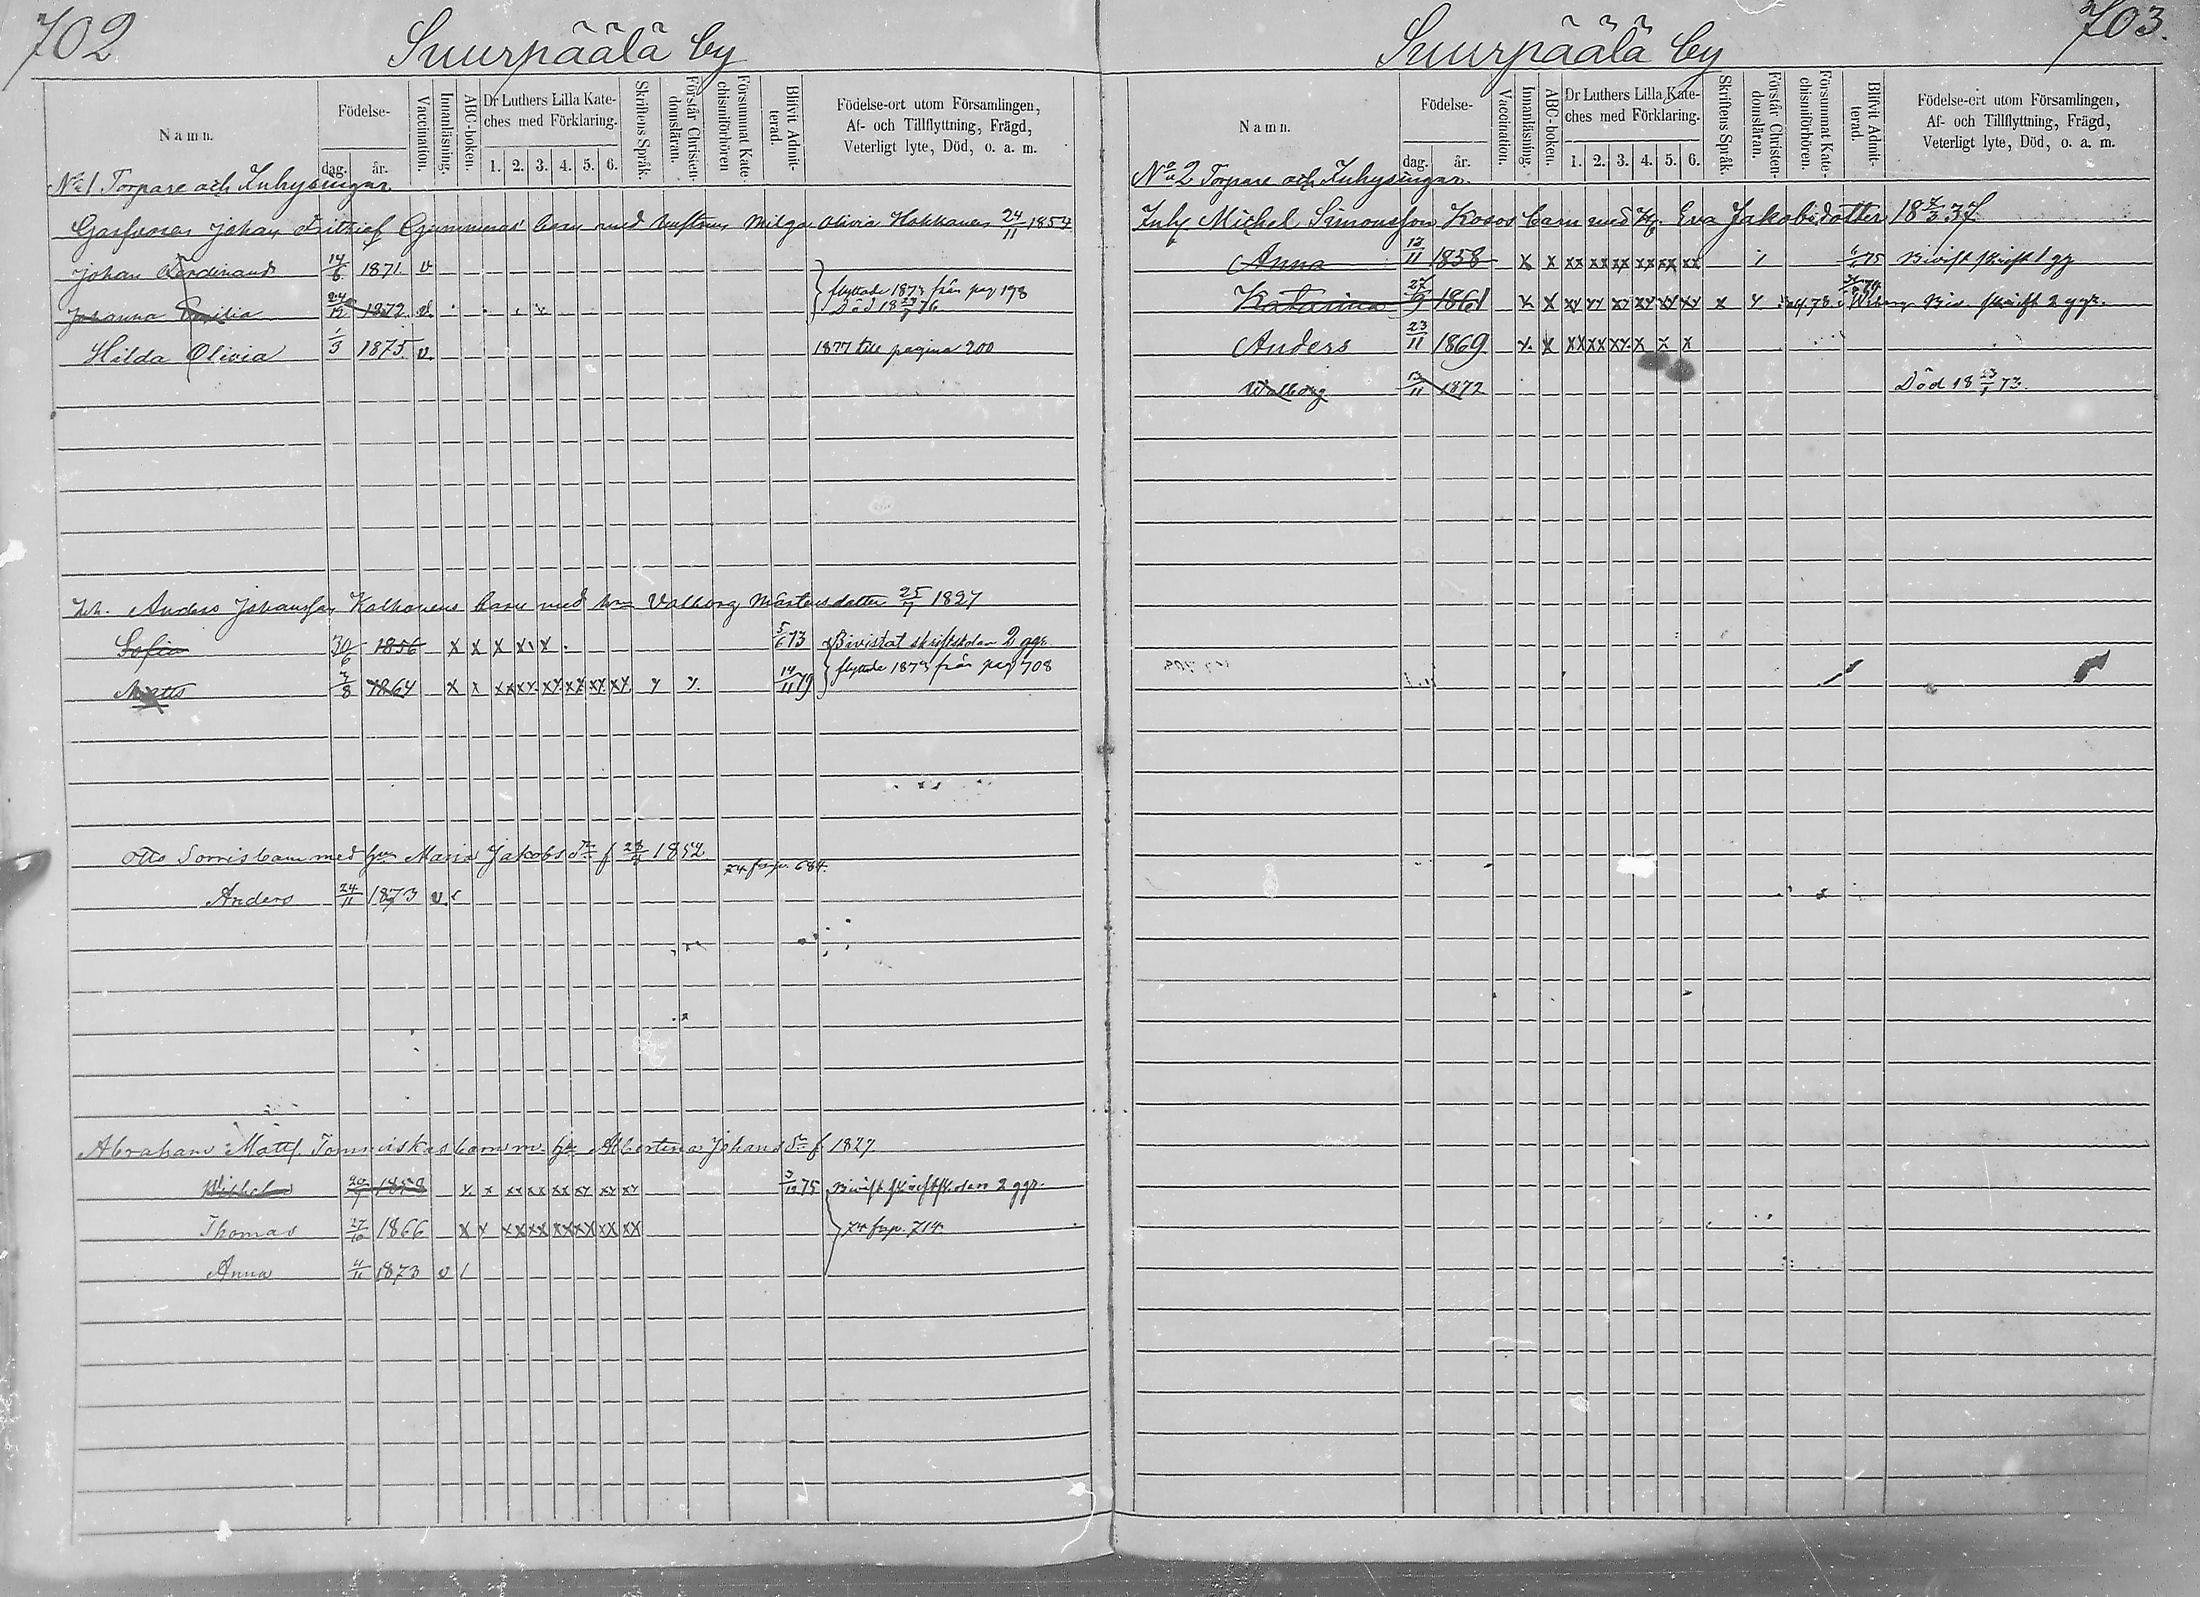 702
Suurpäälä by
Namn.
Födelse-
dag. år.
Vaccination.
Innanläsning.
ABC-boken.
Dr Luthers Lilla Kate-
ches med Förklaring.
1. 2. 3. 4. 5. 6.
Skriftens Språk.
Förstår Christen-
domsläran.
Försummat Kate-
chismiförhören
Blifvit Admit-
terad.
Födelse-ort utom Församlingen,
Af- och Tillflyttning, Frägd,
Veterligt lyte, Död, o. a. m.
No 1 Torpare och Inhysingar.
Johan Gummerus barn med hustrun Olivia Hakkanen 24/11 1854
Johan Ferdinand 14/6 1871 v
flyttade 1873 från pag 198
Johanna Emilia 24/12 1872 v Död 18 76
Hilda Olivia 1/3 1875 v. 1877 till pagina 200
Anders Johansson Kolhonens barn med Valborg Mårtensdotter 25/7 1827
Sofia 30/6 1856 x x x x x x 5/6 73 Bivistat skriftskolan 2 ggr.
flyttade 1873 från pag 708
Matts 7/8 1864 x x xx xx xx xx xx xx x x 14/11 79
Otto Sorris barn med Maria Jakobs dr f 1852
74 fr p. 684.
Anders 24/11 1873 v
Abraham Matts. barn m. Albertina Johans dr f 1827.
Mickel 20/9 1858 x x xx xx xx xx xx xx 3/12 75 Bivist skriftskolan 2 ggr.
Thomas 27/10 1866 x x xx xx xx xx xx xx 74 fr p. 714.
Anna 4/11 1873 v /
703.
Suurpäälä by
Namn.
Födelse-
dag. år.
Vaccination.
Innanläsning.
ABC-boken.
Dr Luthers Lilla Kate-
ches med Förklaring.
1. 2. 3. 4. 5. 6.
Skriftens Språk.
Förstår Christen-
domsläran.
Försummat Kate-
chismiförhören.
Blifvit Admit-
terad.
Födelse-ort utom Församlingen,
Af- och Tillflyttning, Frägd,
Veterligt lyte, Död, o. a. m.
No 2 Torpare och Inhysingar.
Inh Michel Simonsson Kosos barn med H. Eva Jakobsdotter 18 7/3 37
Anna 12/11 1858 x x xx xx xx xx xx xx / 75 Bivist skrift 1 gg
Katarina 27/9 1861 x x xx xx xx xx xx xx x x 79 Wiborg Bis. skrift 2 ggr.
Anders 23/11 1869 x x xx xx xx x x x
Walborg 13/11 1872 Död 18 23/1 73.